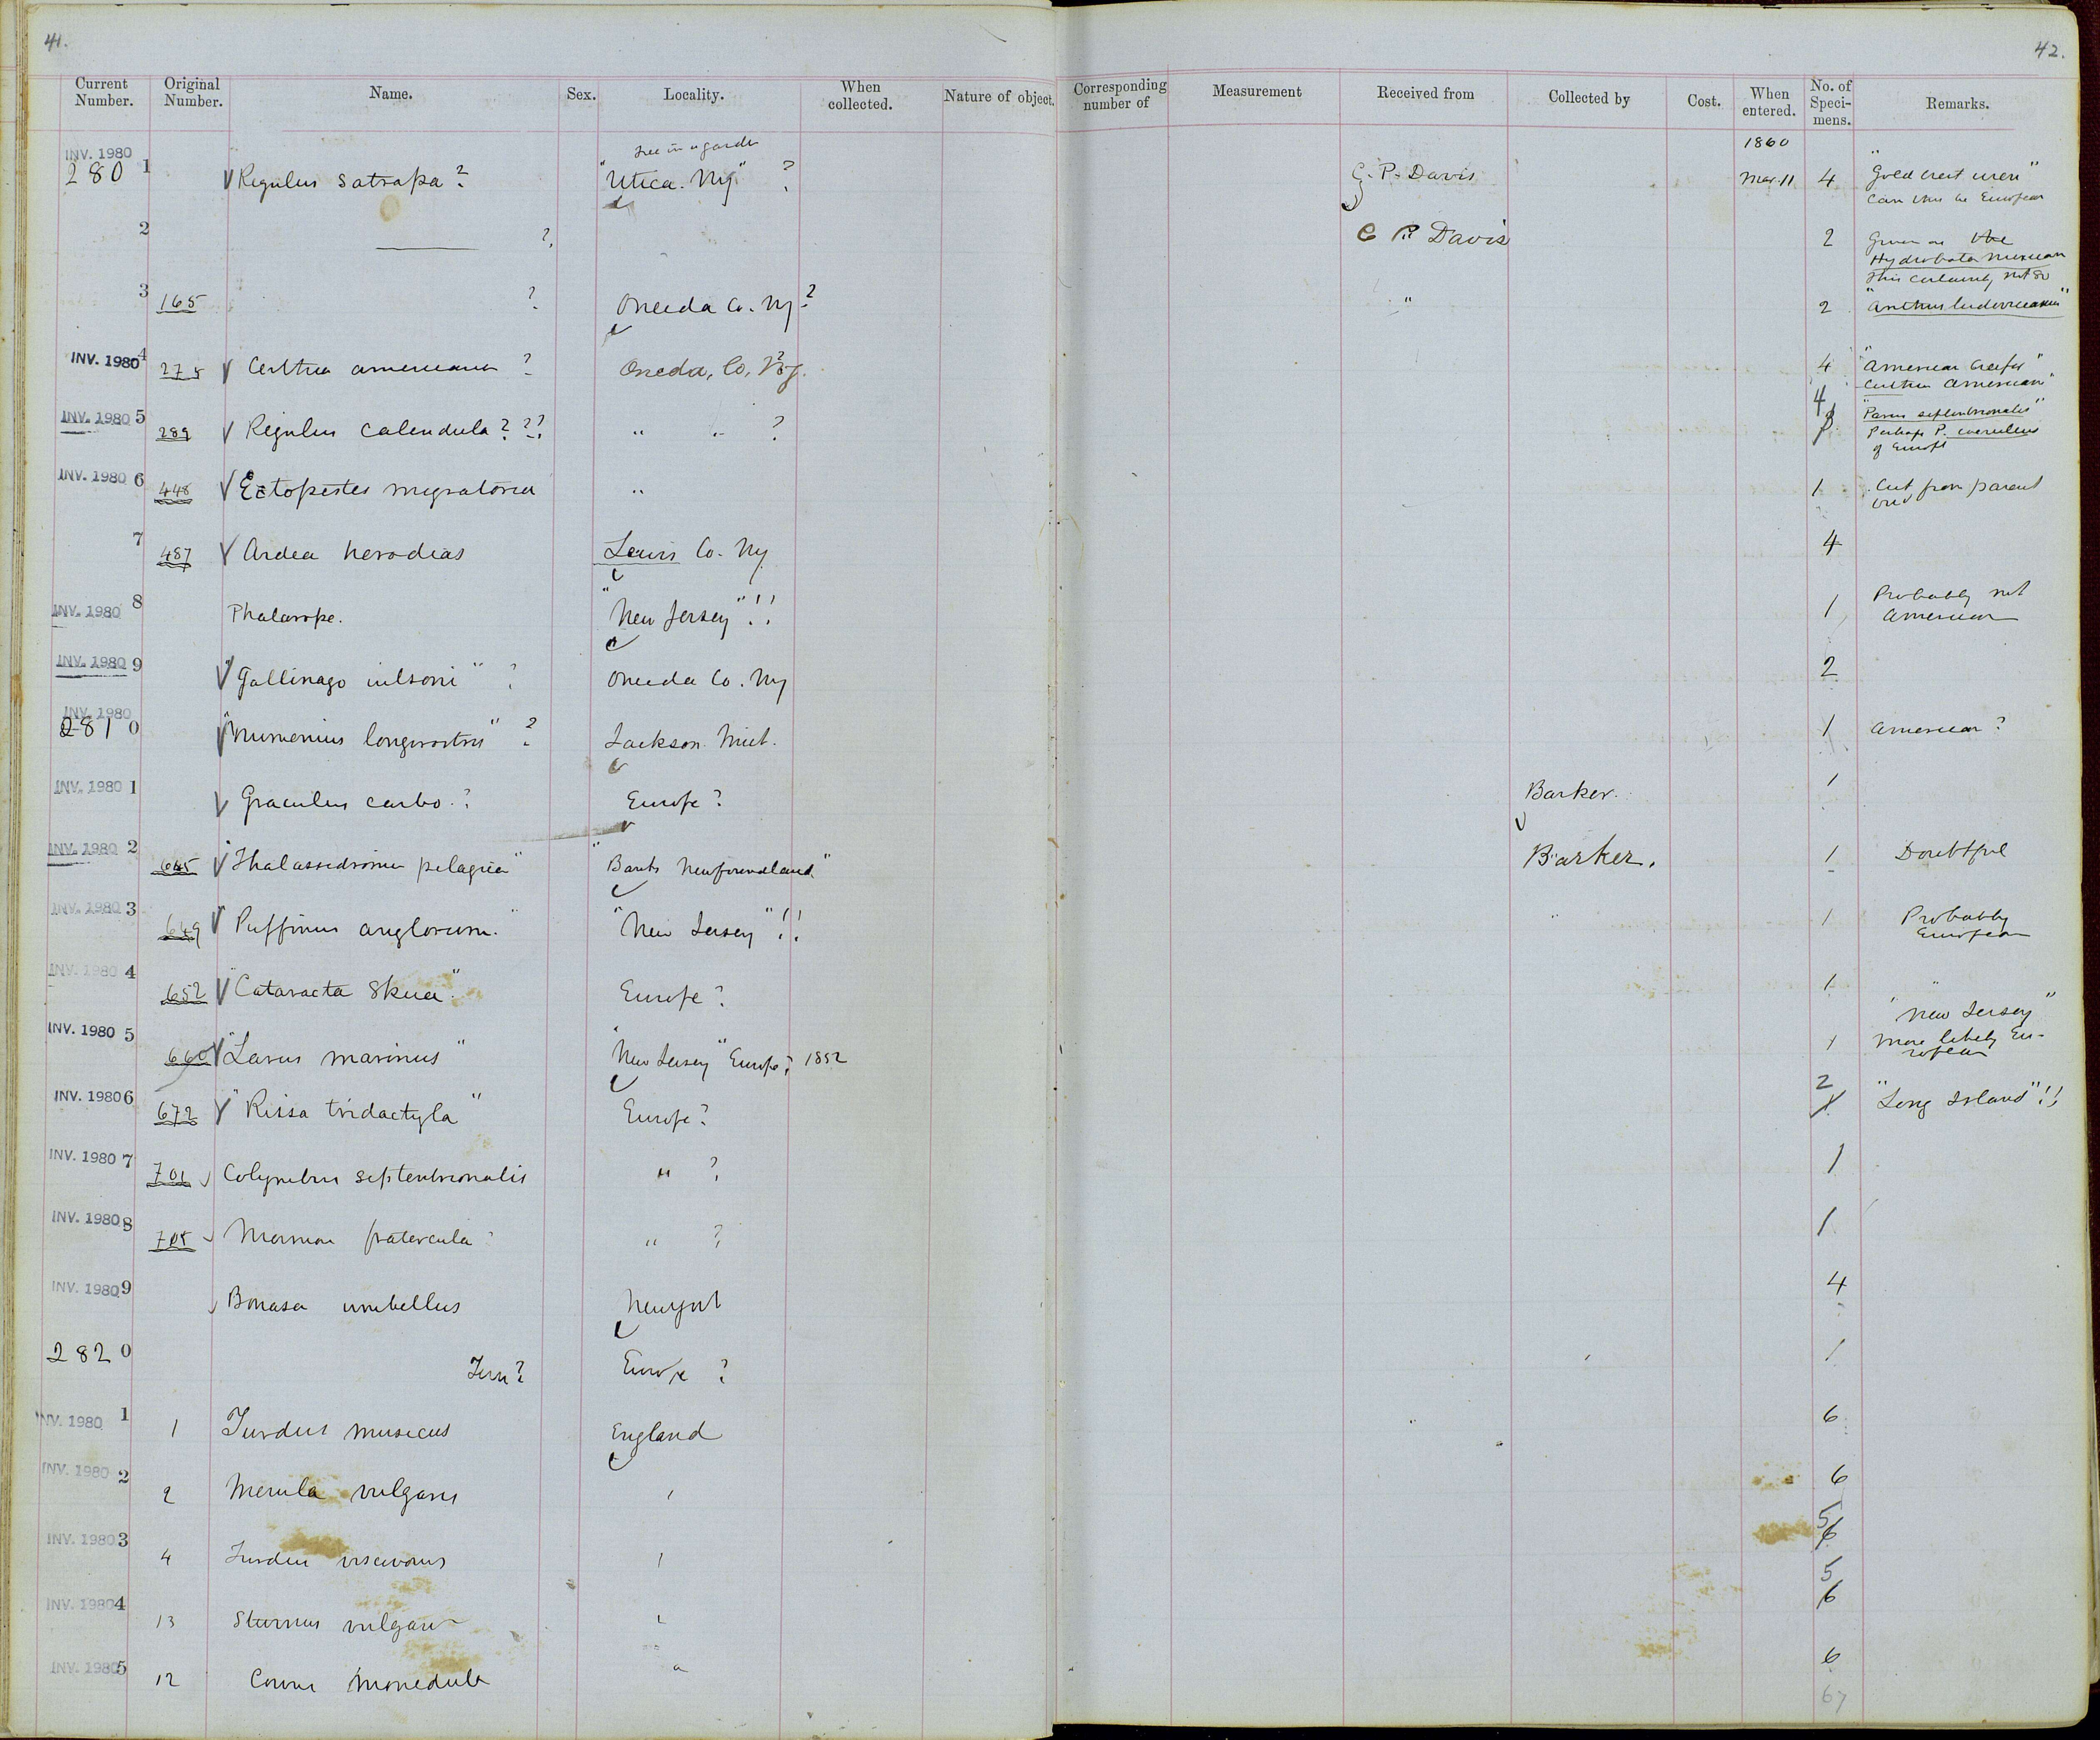 41.
42.
Current Number. Original Number. Name. Sex. Locality. When collected. Nature of object. Corresponding number of Measurement Received from Collected by Cost. When entered. No. of Speci-mens. Remarks.
1860
tree in a garden
INV. 1980 280 1 Regulus satrapa? "Utica. Ny" ? C. P. Davis Mar. 11 4 "Gold crest wren"
can this be European
2 ? C P. Davis 2 Given as the
Hydrobata mexicana
this certainly not so
3 165 ? Oneida Co. Ny? " 2 "Anthus ludovicianus"
INV. 1980 4 275 Certhia americana ? Oneda, Co, N?y. 4 "American Creeper"
Certhia American"
INV. 1980 5 289 Regulus calendula? ?? " " ? 4 "Parus septentrionalis"
Perhaps P. coeruleus
of Europe
INV. 1980 6 448 Ectopistes migratoria " 1 Cut from parent
bird
7 487 Ardea herodias Lewis Co. Ny 4
INV. 1980 8 Phalarope. "New Jersey"!! 1 Probably not
American
INV. 1980 9 "Gallinago wilsoni" ? Oneida Co. Ny 2
INV. 1980 281 0 "Numenius longirostris" ? Jackson. Mich. 1 American?
INV. 1980 1 Graculus carbo.? Europe? Barker. 1
INV. 1980 2 645 "Thalassidroma pelagica" "Banks Newfoundland" Barker. 1 Doubtful
INV. 1980 3 649 "Puffinus anglorum." "New Jersey"!! " 1 Probably
European
INV. 1980 4 652 "Cataracta Skua". Europe? 1 "
"New Jersey"
INV. 1980 5 660 "Larus marinus" "New Jersey" Europe? 1852 1 More likely Eu-
ropean
INV. 1980 6 672 "Rissa tridactyla" Europe? 2 "Long Island"!!
INV. 1980 7 701 Colymbus septentrionalis " ? 1
INV. 1980 8 715 Mormon fratercula ? " ? 1
INV. 1980 9 Bonasa umbellus New York 4
282 0 Tern? Europe ? 1
INV. 1980 1 1 Turdus musicus England " 6
INV. 1980 2 2 Merula vulgaris 6
INV. 1980 3 4 Turdus viscivorus 5 6
INV. 1980 4 13 Sturnus vulgaris 5 6
INV. 1980 5 12 Corvus monedula " 6
67